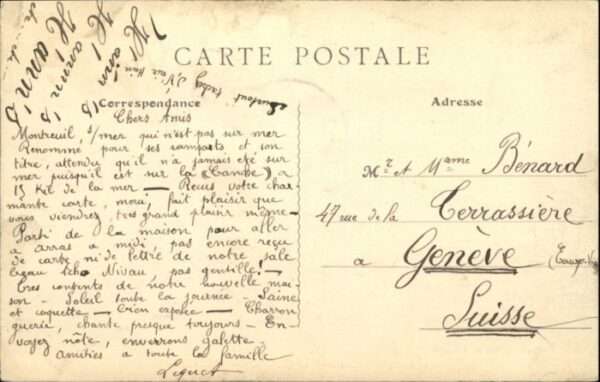 CARTE POSTALE
Correspondance
Chers Amis
Montreuil, s/mer qui n'est pas sur mer
Renommé pour ses remparts et son
titre, attendu qu'il n'a jamais été sur
mer puisqu'il est sur la (Canche) a
15 Kil de la mer — Reçus votre char-
mante carte, moi, fait plaisir que
vous viendrez, très grand plaisir même —
Parti de la maison pour aller
a arras a midi, pas encore reçu
de carte ni de lettre de notre sale
pas gentille! —
Très contents de notre nouvelle mai-
son — Soleil toute la journée — Saine
et coquette — bien exposée —
chante presque toujours — En-
voyez note, enverrons galette
amitiés a toute la famille
Adresse
Mr et Mame Bénard
47 rue de la Terrassière
a Genève
Suisse